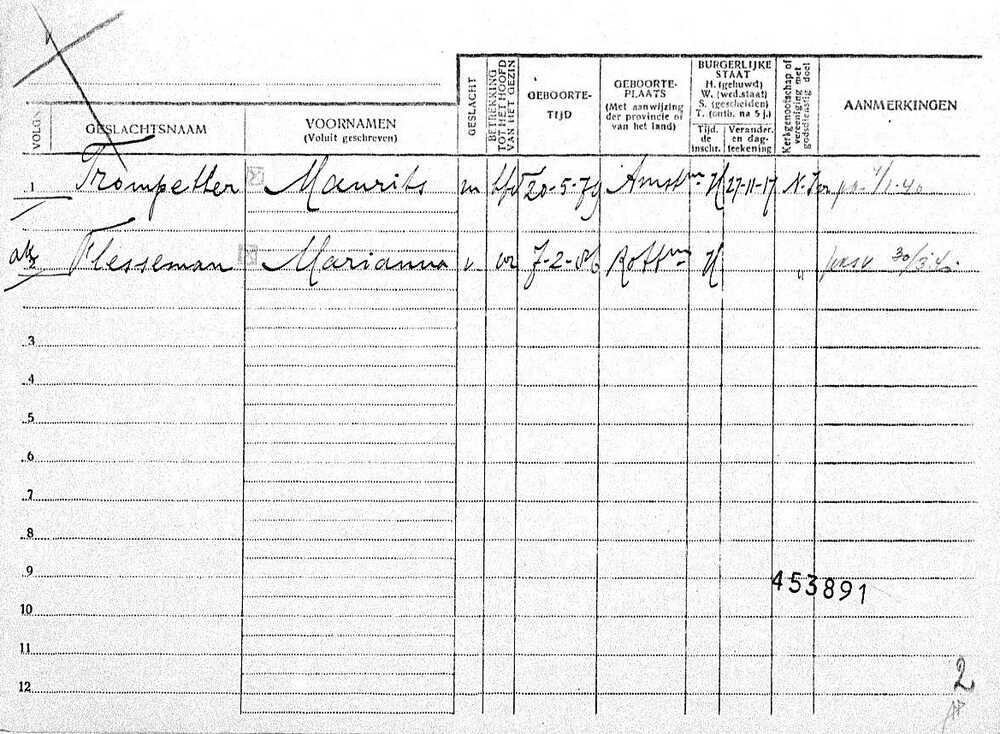 VOLGN. GESLACHTSNAAM VOORNAMEN (Voluit geschreven) GESLACHT BETREKKING TOT HET HOOFD VAN HET GEZIN GEBOORTE-TIJD GEBOORTE-PLAATS (Met aanwijzing der provincie of van het land) BURGERLIJKE STAAT H. (gehuwd) W. (wed.staat) S. (gescheiden) T. (ontb. na 5 j.) Tijd. de inschr. Verander. en dag-teekening Kerkgenootschap of vereeniging met godsdienstig doel AANMERKINGEN
1 Trompetter Maurits m hfd 20-5-79 Amstm H 27-11-17 N.Isr 4/1-40
2 Flesseman Marianna v vr 7-2-86 Rottm H " 30/3
3
4
5
6
7
8
9
453891
10
11
12
2